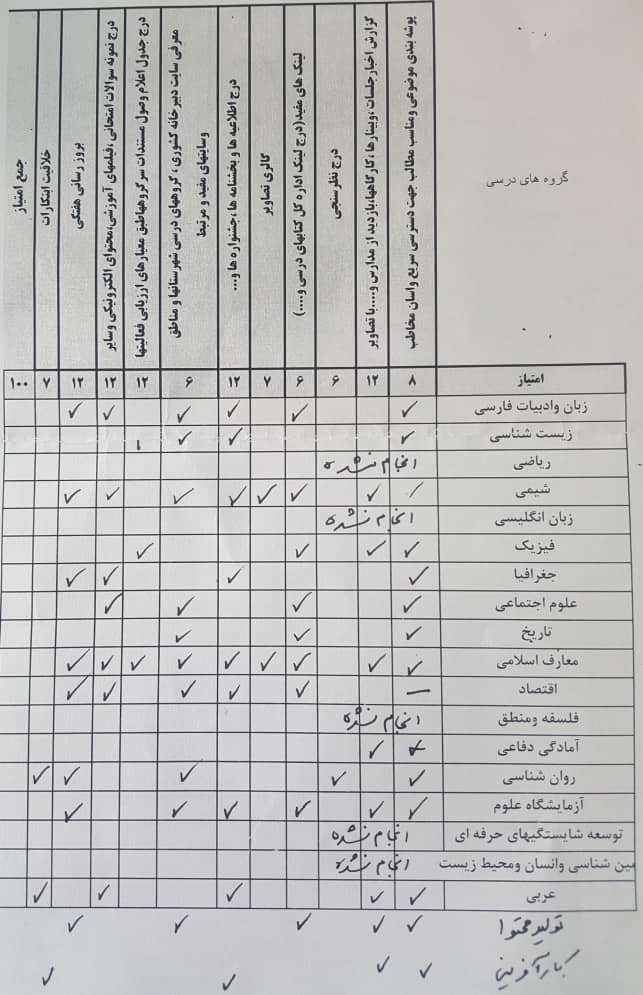 گروه های درسی
پوشه بندی موضوعی ومناسب مطالب جهت دسترسی سریع واسان مخاطب
گزارش اخبار جلسات ،وبینارها ،کارگاهها،بازدید از مدارس و.....با تصاویر
درج نظر سنجی
لینک های مفید(درج لینک اداره کل کتابهای درسی و.....)
گالری تصاویر
درج اطلاعیه ها و بخشنامه ها ،جشنواره ها و...
معرفی سایت دبیرخانه کشوری ، گروههای درسی شهرستانها و مناطق
وسایتهای مفید و مرتبط
درج جدول اعلام وصول مستندات سر گروههاطبق معیارهای ارزیابی فعالیتها
درج نمونه سوالات امتحانی ،فیلمهای آموزشی،محتوای الکترونیکی وسایر
بروز رسانی هفتگی
خلاقیت ابتکارات
جمع امتیاز
امتیاز ۸ ۱۲ ۶ ۶ ۷ ۱۲ ۶ ۱۲ ۱۲ ۱۲ ۷ ۱۰۰
زبان وادبیات فارسی ✓ ✓ ✓ ✓ ✓ ✓
زیست شناسی ✓ ✓ ✓
ریاضی انجام نشده
شیمی ✓ ✓ ✓ ✓ ✓ ✓ ✓
زبان انگلیسی انجام نشده
فیزیک ✓ ✓ ✓ ✓
جغرافیا ✓ ✓ ✓ ✓
علوم اجتماعی ✓ ✓ ✓ ✓
تاریخ ✓ ✓ ✓
معارف اسلامی ✓ ✓ ✓ ✓ ✓ ✓ ✓ ✓ ✓
اقتصاد — ✓ ✓ ✓ ✓ ✓
فلسفه ومنطق انجام نشده
آمادگی دفاعی ✓ ✓
روان شناسی ✓ ✓ ✓ ✓ ✓
آزمایشگاه علوم ✓ ✓ ✓ ✓ ✓ ✓
توسعه شایستگیهای حرفه ای انجام نشده
مین شناسی وانسان ومحیط زیست انجام نشده
عربی ✓ ✓ ✓ ✓ ✓
تولید محتوا ✓ ✓ ✓ ✓ ✓
کارآفرینی ✓ ✓ ✓ ✓